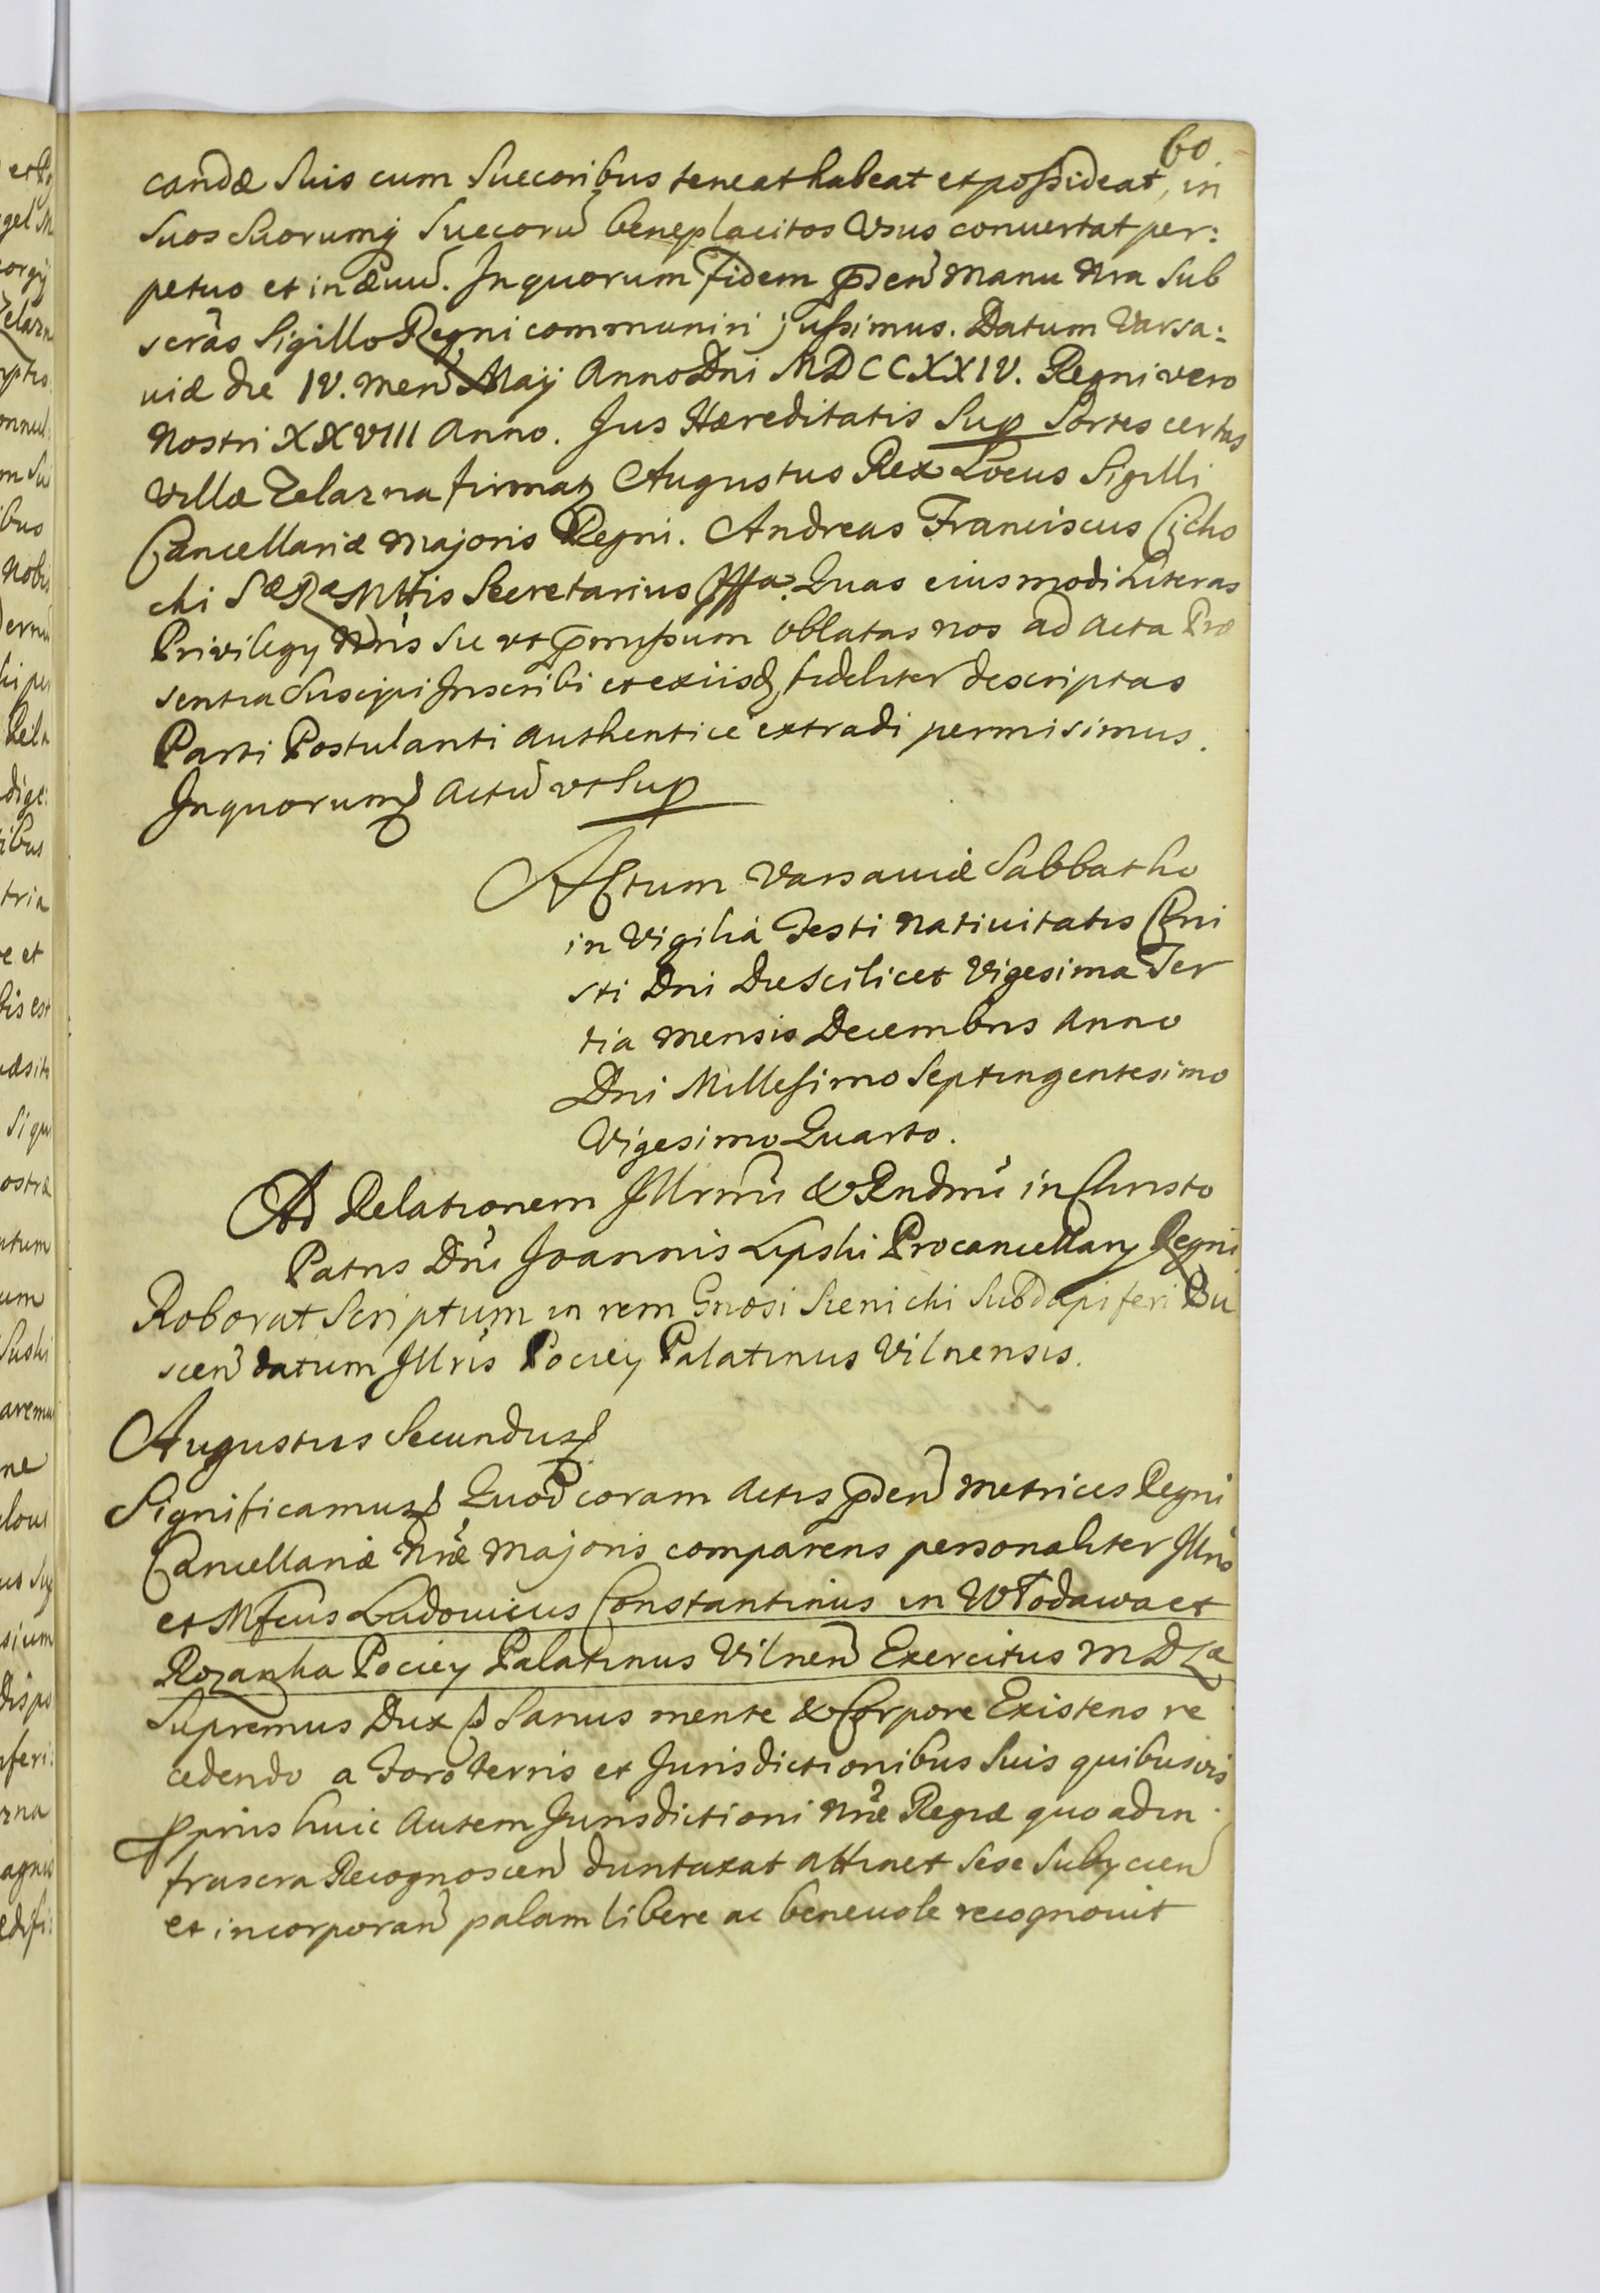 60.
candæ suis cum Succoribus teneat habeat et possideat, in
Suos Suorumq Succorū beneplacitos Usus conuertat per:
petuo et in æuū. In quorum fidem pden Manu Nra Sub
scrās Sigillo Regni communiri jussimus. Datum Varsa:
uiæ die IV. Men Maij Anno Dni MDCCXXIV. Regni vero
Nostri XXVIII Anno. Jus Hæreditatis Sup Sortes certas
Villæ Zelazna firmatz Augustus Rex Locus Sigilli
Cancellariæ Majoris Regni. Andreas Franciscus Cicho
cki Sæ Ræ Mttis Secretarius Quas eiusmodi Literas
Privilegy Nris Se vt pmissum Oblatas nos ad Acta Præ
sentia Suscipi Inscribi et ex iisd fideliter descriptas
Parti Postulanti Authentice extradi permisimus.
In quorum Actū vt Sup
Actum Varsauiæ Sabbatho
in Vigilia Festi Natiuitatis Chri
sti Dni Die Scilicet Vigesima Ter
tia Mensis Decembris Anno
Dni Millesimo Septingentesimo
Vigesimo Quarto.
Ad Relationem Illrmi & Rndmi in Christo
Patris Dni Joannis Lipski Procancellary Regni
Roborat Scriptum in rem Gnosi Sienicki Subdapiferi Bu
scen datum Illris Pociey Palatinus Vilnensis.
Augustus Secundus
Significamus Quod coram Actis pden Metrices Regni
Cancellariæ Nræ Majoris comparens personaliter Illris
et Mfcus Ludouicus Constantinus in Włodawa et
Rozanka Pociey Palatinus Vilnen Exercitus M D La
Supremus Dux Sanus mente & Corpore Existens re
cedendo a Foro Terris et Jurisdictionibus Suis quibusvis
pprijs huic Autem Jurisdictioni Nræ Regiæ quo ad in
frascra Recognoscen duntaxat attinet Sese Subycien
et incorporan palam libere ac beneuole recognouit